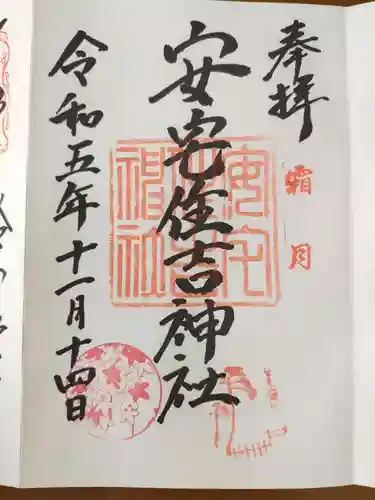 奉拝
霜月
安宅住吉神社
安宅住吉神社
令和五年十一月十四日